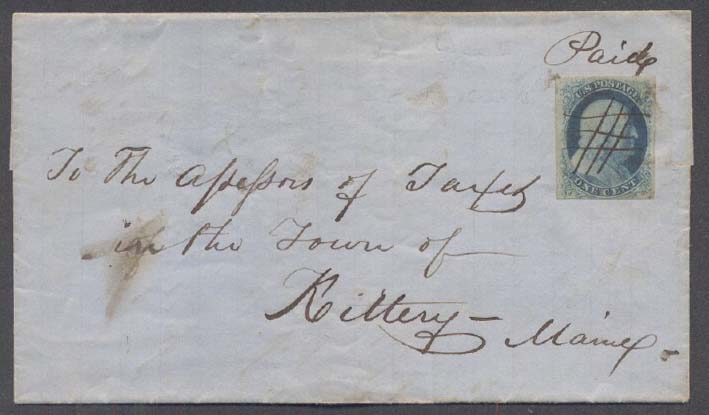 Paid
U.S. POSTAGE
ONE CENT
To The Assessors of Taxes
in the Town of
Kittery – Maine.